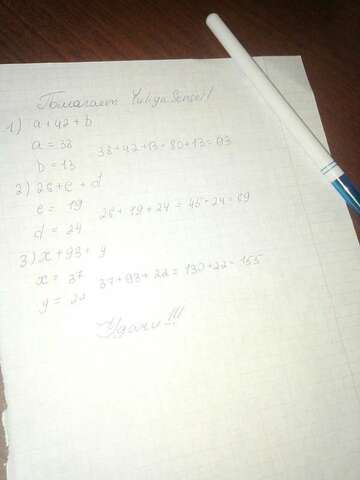 Помагает YuliyaSensei!
1) a+42+b
a = 38
b = 13 38+42+13=80+13=93
2) 26+c+d
c = 19
d = 24 26+19+24=45+24=69
3) x+93+y
x = 37
y = 22 37+93+22=130+22=155
Удачи!!!